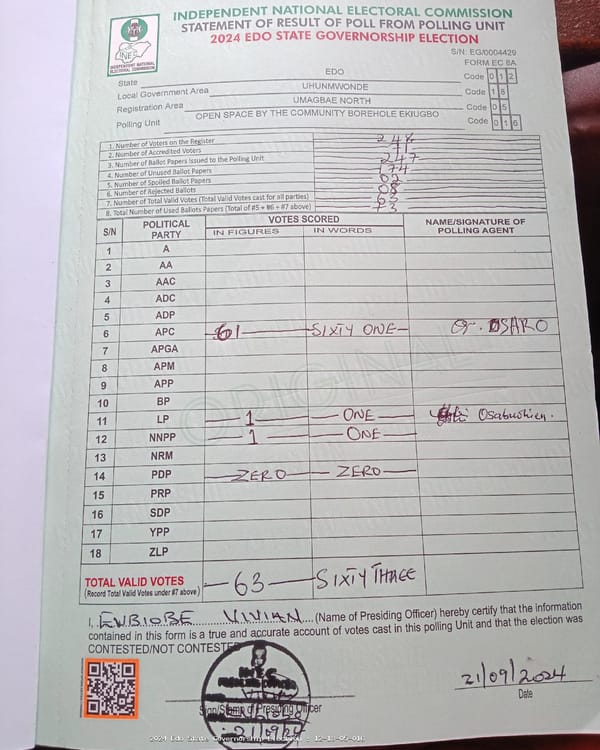 INDEPENDENT NATIONAL ELECTORAL COMMISSION
STATEMENT OF RESULT OF POLL FROM POLLING UNIT
2024 EDO STATE GOVERNORSHIP ELECTION
INEC
INDEPENDENT NATIONAL ELECTORAL COMMISSION
S/N: EG/0004429
FORM EC 8A
State EDO Code 0 1 2
Local Government Area UHUNMWONDE Code 1 8
Registration Area UMAGBAE NORTH Code 0 5
Polling Unit OPEN SPACE BY THE COMMUNITY BOREHOLE EKIUGBO Code 0 1 6
1. Number of Voters on the Register 248
2. Number of Accredited Voters 71
3. Number of Ballot Papers Issued to the Polling Unit 247
4. Number of Unused Ballot Papers 174
5. Number of Spoiled Ballot Papers 02
6. Number of Rejected Ballots 08
7. Number of Total Valid Votes (Total Valid Votes cast for all parties) 63
8. Total Number of Used Ballots Papers (Total of #5 + #6 + #7 above) 73
S/N POLITICAL PARTY VOTES SCORED NAME/SIGNATURE OF POLLING AGENT
IN FIGURES IN WORDS
1 A
2 AA
3 AAC
4 ADC
5 ADP
6 APC 61 SIXTY ONE O. OSARO
7 APGA
8 APM
9 APP
10 BP
11 LP 1 ONE Osabuohien.
12 NNPP 1 ONE
13 NRM
14 PDP ZERO ZERO
15 PRP
16 SDP
17 YPP
18 ZLP
ORIGINAL
TOTAL VALID VOTES 63 SIXTY THREE
(Record Total Valid Votes under #7 above)
I, EWBIOBE VIVIAN (Name of Presiding Officer) hereby certify that the information
contained in this form is a true and accurate account of votes cast in this polling Unit and that the election was
CONTESTED/NOT CONTESTED
21/09/2024
Sign/Stamp of Presiding Officer
Date
2024 Edo State Governorship Election - 12-18-05-016